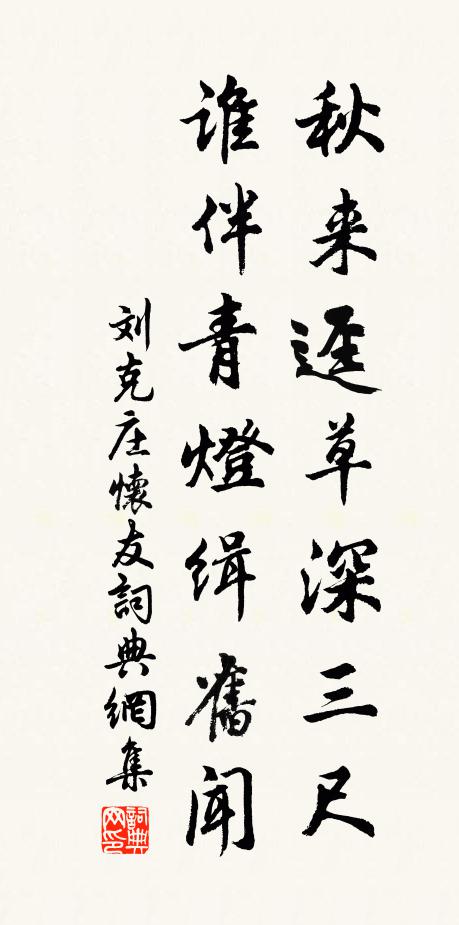 秋来逕草深三尺
谁伴青燈缉舊闻
刘克庄懷友詞典網集
詞典网印